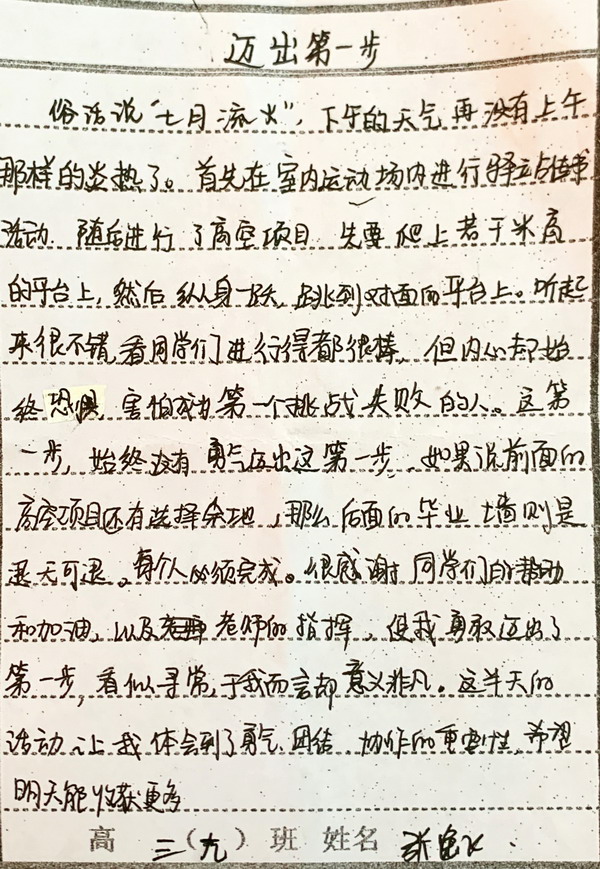 迈出第一步
俗话说“七月流火”，下午的天气再没有上午
那样的炎热了。首先在室内运动场内进行驿站传书
活动，随后进行了高空项目，先要爬上若干米高
的平台上，然后纵身一跃，跳到对面的平台上。听起
来很不错，看同学们进行得都很棒，但内心却始
终恐惧，害怕成为第一个挑战失败的人。这第
一步，始终没有勇气迈出这第一步。如果说前面的
高空项目还有选择余地，那么后面的毕业墙则是
退无可退。每个人必须完成。很感谢同学们的帮助
和加油，以及老师的指挥，使我勇敢迈出了
第一步，看似寻常，于我而言却意义非凡。这半天的
活动，让我体会到了勇气、团结、协作的重要性，希望
明天能收获更多
高 三（九）班 姓名 张